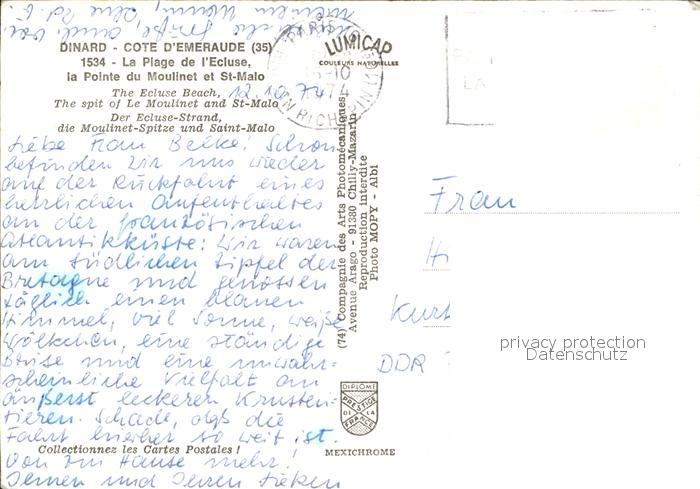 DINARD - COTE D'EMERAUDE (35)
1534 - La Plage de l'Ecluse,
la Pointe du Moulinet et St-Malo
The Ecluse Beach,
The spit of Le Moulinet and St-Malo
Der Ecluse-Strand,
die Moulinet-Spitze und Saint-Malo
LUMICAP
COULEURS NATURELLES
12.10.74
Liebe Frau Belke! Schon
befinden wir uns wieder
auf der Rückfahrt eines
herrlichen Aufenthaltes
an der französischen
Atlantikküste: Wir waren
am südlichen Zipfel der
Bretagne und genossen
täglich einen blauen
Himmel, viel Sonne, weiße
Wölkchen, eine ständige
Brise und eine unwahr-
scheinliche Vielfalt an
äußerst leckeren Krusten-
tieren. Schade, daß die
Fahrt hierher so weit ist.
Collectionnez les Cartes Postales !
Von zu Hause mehr!
Ihnen und Ihren Lieben
(74) Compagnie des Arts Photomécaniques
Avenue Arago - 91380 Chilly-Mazarin
Reproduction interdite
Photo MOPY - Albi
DIPLOME
PRESTIGE
DE LA
FRANCE
MEXICHROME
Frau
Kurt
DDR
privacy protection
Datenschutz